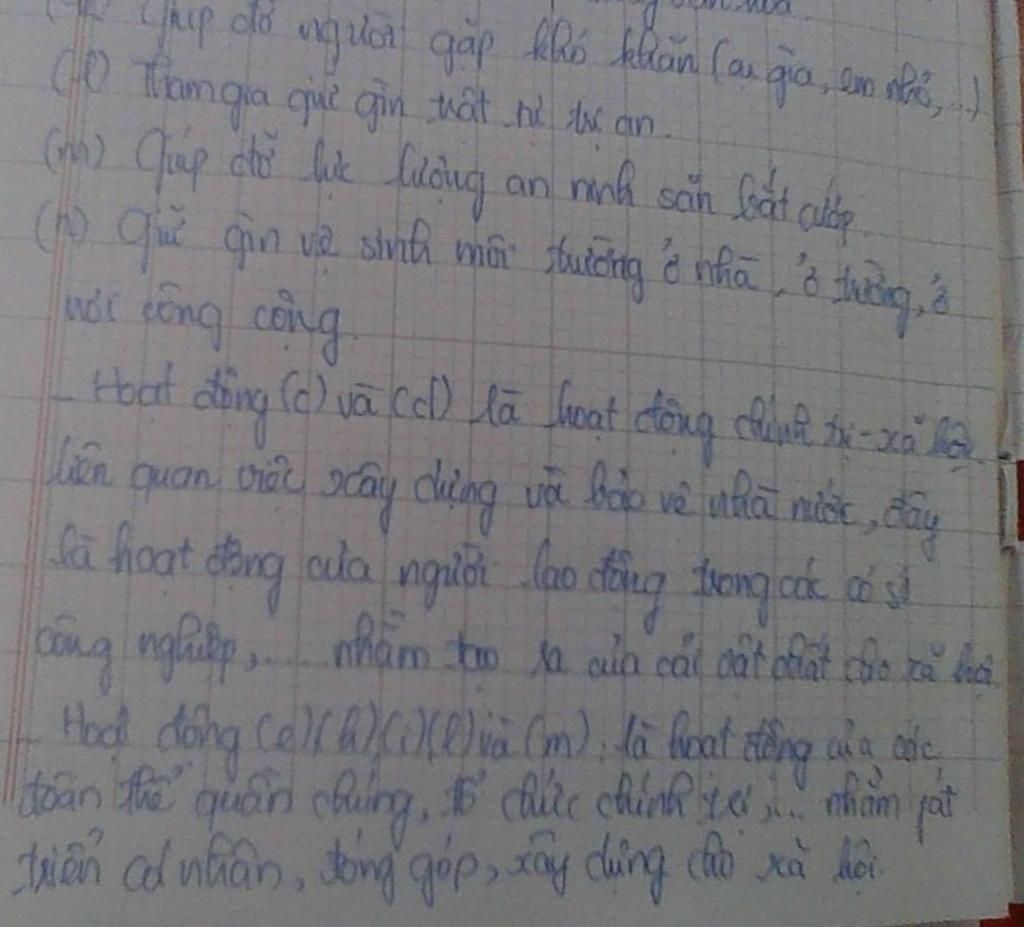 Giúp đỡ người gặp khó khăn (cụ già, em nhỏ,...)
(l) Tham gia giữ gìn trật tự trị an.
(m) Giúp đỡ lực lượng an ninh săn bắt cướp.
(n) Giữ gìn vệ sinh môi trường ở nhà, ở trường, ở
nơi công cộng.
- Hoạt động (c) và (d) là hoạt động chính trị - xã hội
liên quan việc xây dựng và bảo vệ nhà nước, đây
là hoạt động của người lao động trong các cơ sở
công nghiệp,... nhằm tạo ra của cải vật chất cho xã hội
- Hoạt động (e)(h)(i)(l) và (m), là hoạt động của các
đoàn thể quần chúng, tổ chức chính trị,... nhằm pát
triển cá nhân, đóng góp, xây dựng cho xã hội.